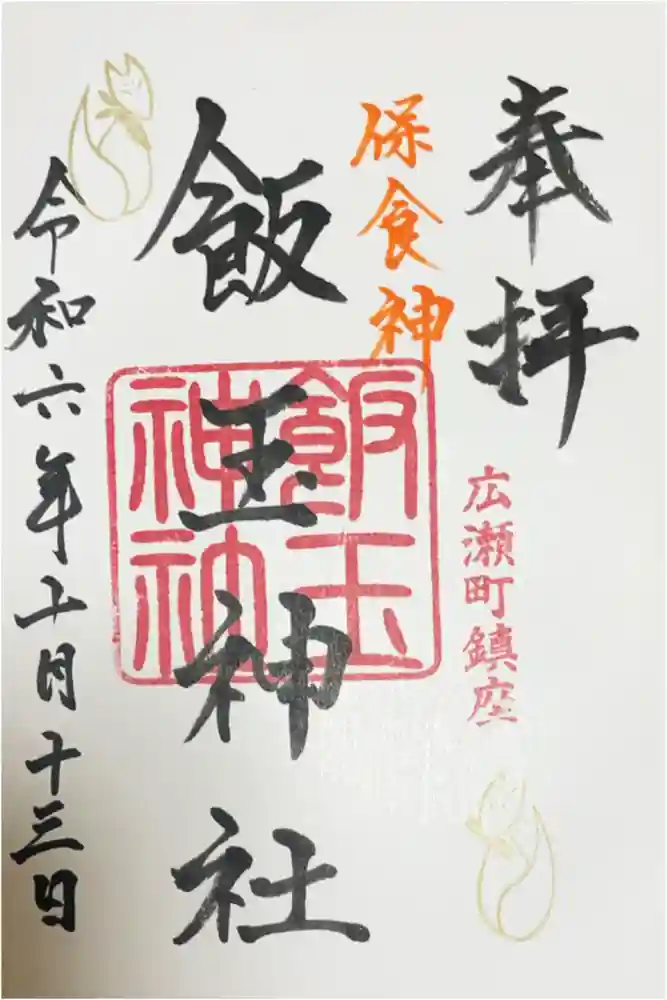 奉拝
広瀬町鎮座
保食神
飯玉神社
飯玉
神社
令和六年十一月十三日